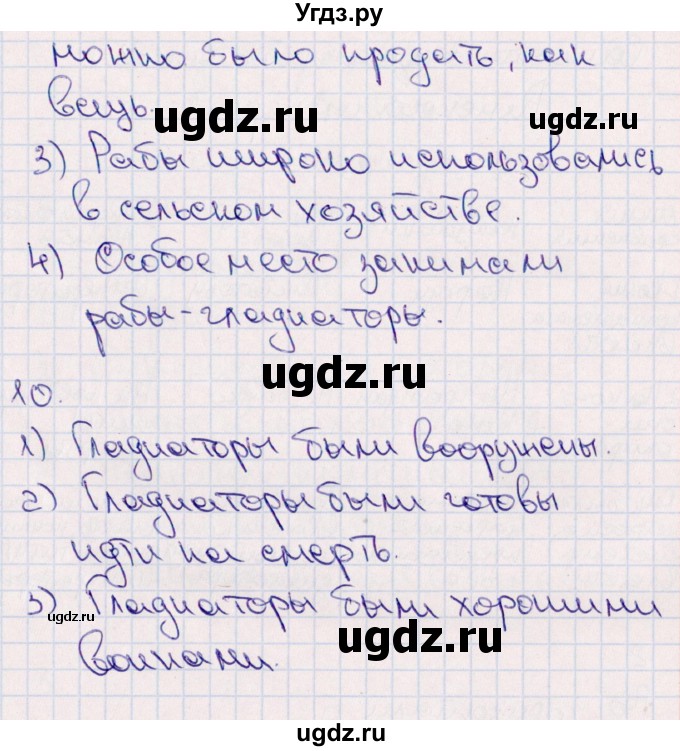 Угдз.ру
можно было продать, как
вещь.
ugdz.ru
3) Рабы широко использовались
в сельском хозяйстве.
4) Особое место занимали
рабы-гладиаторы.
ugdz.ru
10.
1) Гладиаторы были вооружены.
ugdz.ru
2) Гладиаторы были готовы
идти на смерть.
3) Гладиаторы были хорошими
ugdz.ru
ugdz.ru
воинами.
ugdz.ru